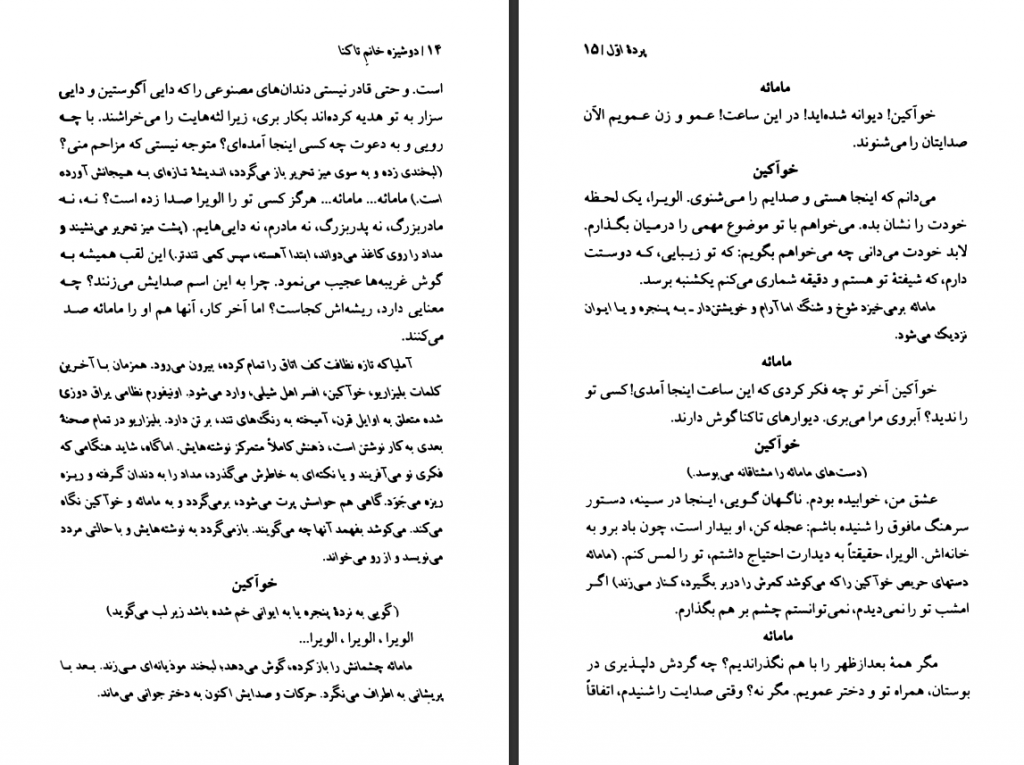 ۱۴ / دوشیزه خانم تاکنا
است. و حتی قادر نیستی دندان‌های مصنوعی را که دایی آگوستین و دایی
سزار به تو هدیه کرده‌اند بکار بری، زیرا لثه‌هایت را می‌خراشند. با چه
رویی و به دعوت چه کسی اینجا آمده‌ای؟ متوجه نیستی که مزاحم منی؟
(لبخندی زده و به سوی میز تحریر باز می‌گردد، اندیشهٔ تازه‌ای به هیجانش آورده
است.) مامائه... مامائه... هرگز کسی تو را الویرا صدا زده است؟ نه، نه
مادربزرگ، نه پدربزرگ، نه مادرم، نه دایی‌هایم. (پشت میز تحریر می‌نشیند و
مداد را روی کاغذ می‌دواند، ابتدا آهسته، سپس کمی تندتر.) این لقب همیشه به
گوش غریبه‌ها عجیب می‌نمود. چرا به این اسم صدایش می‌زنند؟ چه
معنایی دارد، ریشه‌اش کجاست؟ اما آخر کار، آنها هم او را مامائه صد
می‌کنند.
آملیا که تازه نظافت کف اتاق را تمام کرده، بیرون می‌رود. همزمان با آخرین
کلمات بلیزاریو، خوآکین، افسر اهل شیلی، وارد می‌شود. اونیفورم نظامی یراق دوزی
شده متعلق به اوایل قرن، آمیخته به رنگ‌های تند، بر تن دارد. بلیزاریو در تمام صحنهٔ
بعدی به کار نوشتن است، ذهنش کاملاً متمرکز نوشته‌هایش. اما گاه، شاید هنگامی که
فکری نو می‌آفریند و یا نکته‌ای به خاطرش می‌گذرد، مداد را به دندان گرفته و ریزه
ریزه می‌جَوَد. گاهی هم حواسش پرت می‌شود، برمی‌گردد و به مامائه و خوآکین نگاه
می‌کند. می‌کوشد بفهمد آنها چه می‌گویند. بازمی‌گردد به نوشته‌هایش و با حالتی مردد
می‌نویسد و از رو می‌خواند.
خوآکین
(گویی به نردهٔ پنجره یا به ایوانی خم شده باشد زیر لب می‌گوید)
الویرا، الویرا، الویرا...
مامائه چشمانش را باز کرده، گوش می‌دهد؛ لبخند موذیانه‌ای می‌زند. بعد با
پریشانی به اطراف می‌نگرد. حرکات و صدایش اکنون به دختر جوانی می‌ماند.
پردهٔ اوّل / ۱۵
مامائه
خوآکین! دیوانه شده‌اید! در این ساعت! عمو و زن عمویم الآن
صدایتان را می‌شنوند.
خوآکین
می‌دانم که اینجا هستی و صدایم را می‌شنوی. الویرا، یک لحظه
خودت را نشان بده. می‌خواهم با تو موضوع مهمی را درمیان بگذارم.
لابد خودت می‌دانی چه می‌خواهم بگویم: که تو زیبایی، که دوستت
دارم، که شیفتهٔ تو هستم و دقیقه شماری می‌کنم یکشنبه برسد.
مامائه برمی‌خیزد شوخ و شنگ اما آرام و خویشتن‌دار ـ به پنجره و یا ایوان
نزدیک می‌شود.
مامائه
خوآکین آخر تو چه فکر کردی که این ساعت اینجا آمدی! کسی تو
را ندید؟ آبروی مرا می‌بری. دیوارهای تاکنا گوش دارند.
خوآکین
(دست‌های مامائه را مشتاقانه می‌بوسد.)
عشق من، خوابیده بودم. ناگهان گویی، اینجا در سینه، دستور
سرهنگ مافوق را شنیده باشم: عجله کن، او بیدار است، چون باد برو به
خانه‌اش. الویرا، حقیقتاً به دیدارت احتیاج داشتم، تو را لمس کنم. (مامائه
دستهای حریص خوآکین را که می‌کوشد کمرش را دربر بگیرد، کنار می‌زند) اگر
امشب تو را نمی‌دیدم، نمی‌توانستم چشم بر هم بگذارم.
مامائه
مگر همهٔ بعدازظهر را با هم نگذراندیم؟ چه گردش دلپذیری در
بوستان، همراه تو و دختر عمویم. مگر نه؟ وقتی صدایت را شنیدم، اتفاقاً